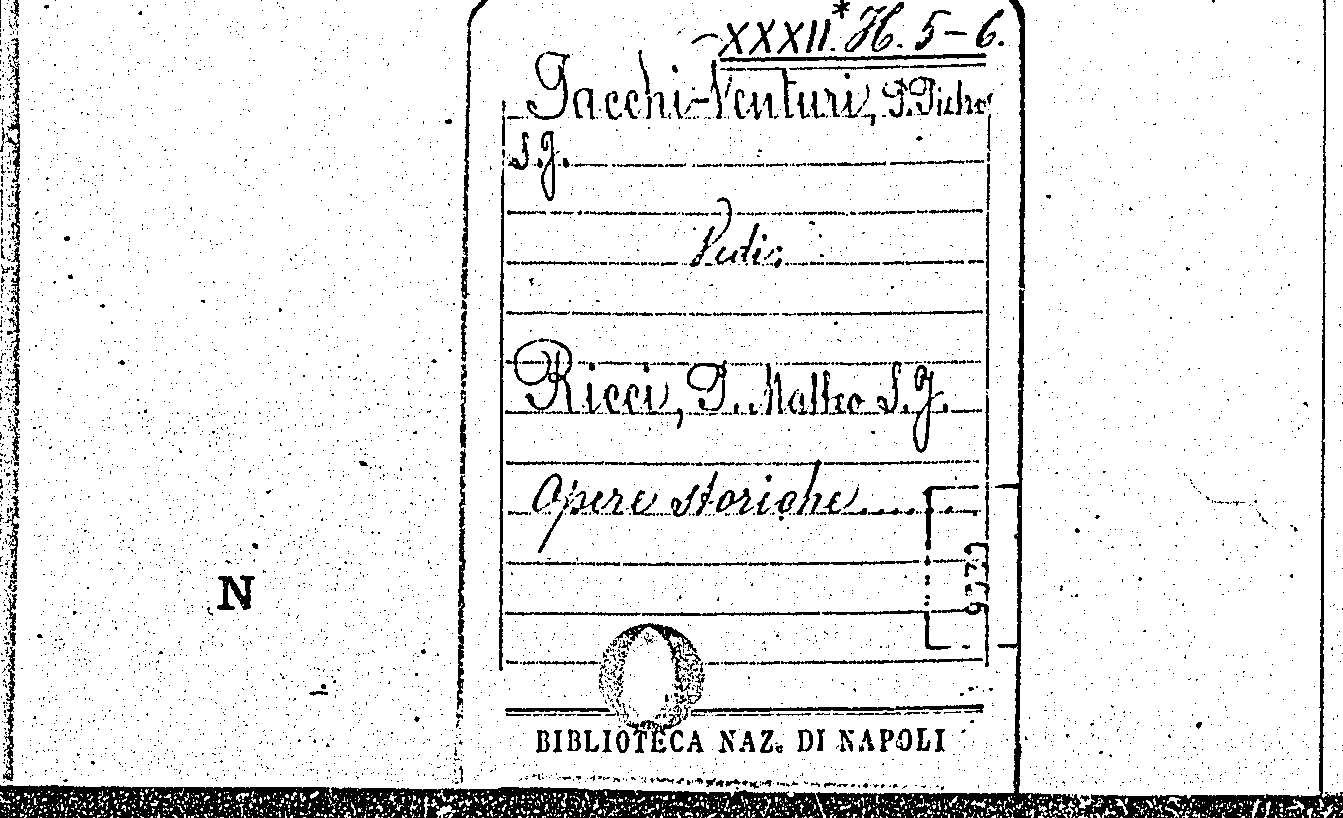 XXXII.* H. 5-6.
Tacchi-Venturi, P. Pietro
S.J.
Vedi:
Ricci, P. Matteo S.J.
Opere storiche.......
N
BIBLIOTECA NAZ. DI NAPOLI